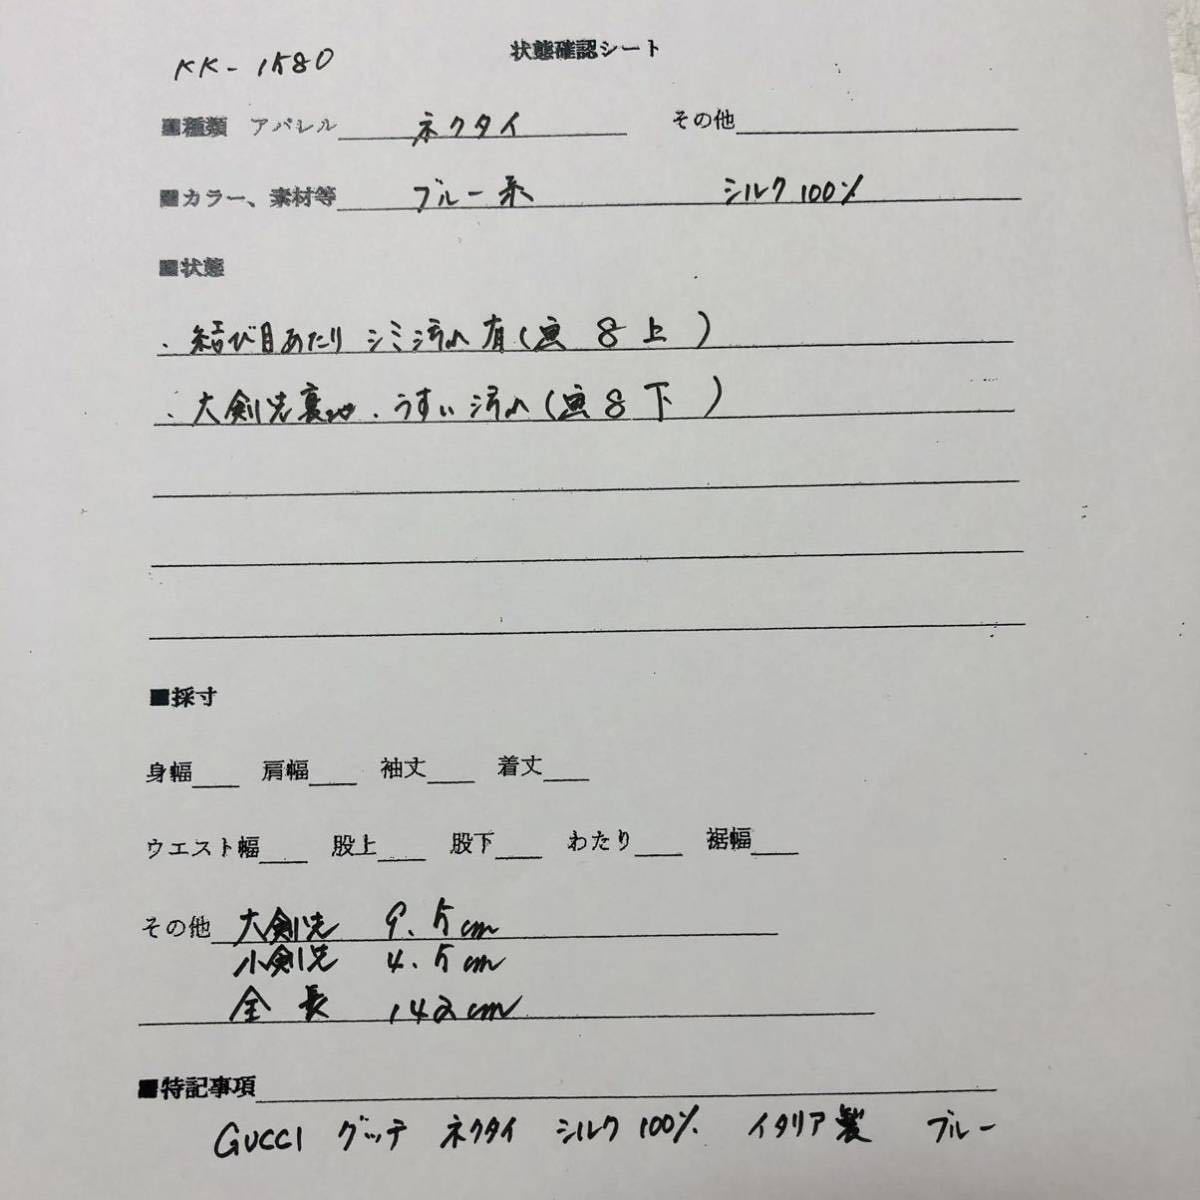 KK-1580
状態確認シート
■種類 アパレル ネクタイ その他
■カラー、素材等 ブルー系 シルク100%
■状態
・結び目あたり シミ汚れ有(画8上)
・大剣先裏地・うすい汚れ(画8下)
■採寸
身幅 肩幅 袖丈 着丈
ウエスト幅 股上 股下 わたり 裾幅
その他 大剣先 9.5cm
小剣先 4.5cm
全長 142cm
■特記事項
GUCCI グッチ ネクタイ シルク100% イタリア製 ブルー